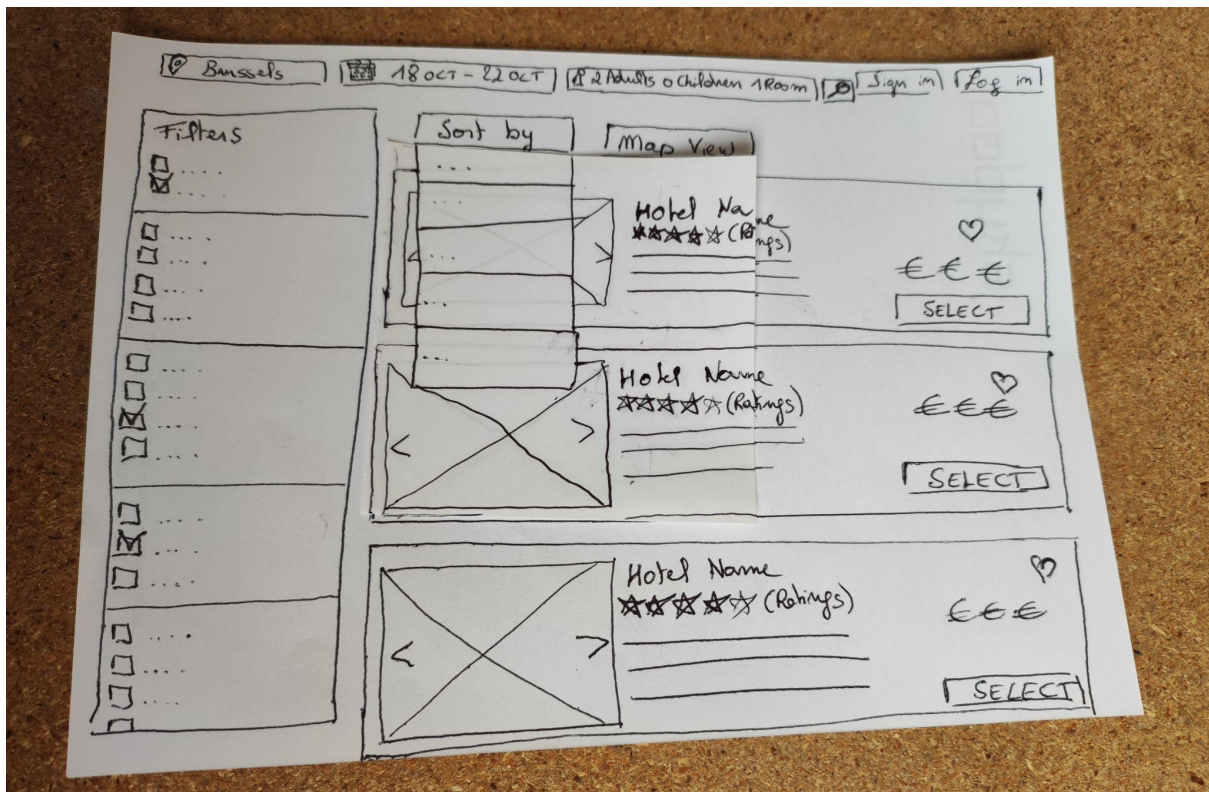 Brussels
18 OCT - 22 OCT
2 Adults 0 Children 1 Room
Sign in
Log in
Filters
Sort by
Map View
.....
....
....
....
....
....
...
...
...
...
...
Hotel Name
(Ratings)
€€€
SELECT
....
....
....
....
Hotel Name
(Ratings)
€€€
SELECT
....
....
....
....
....
....
....
Hotel Name
(Ratings)
€€€
SELECT